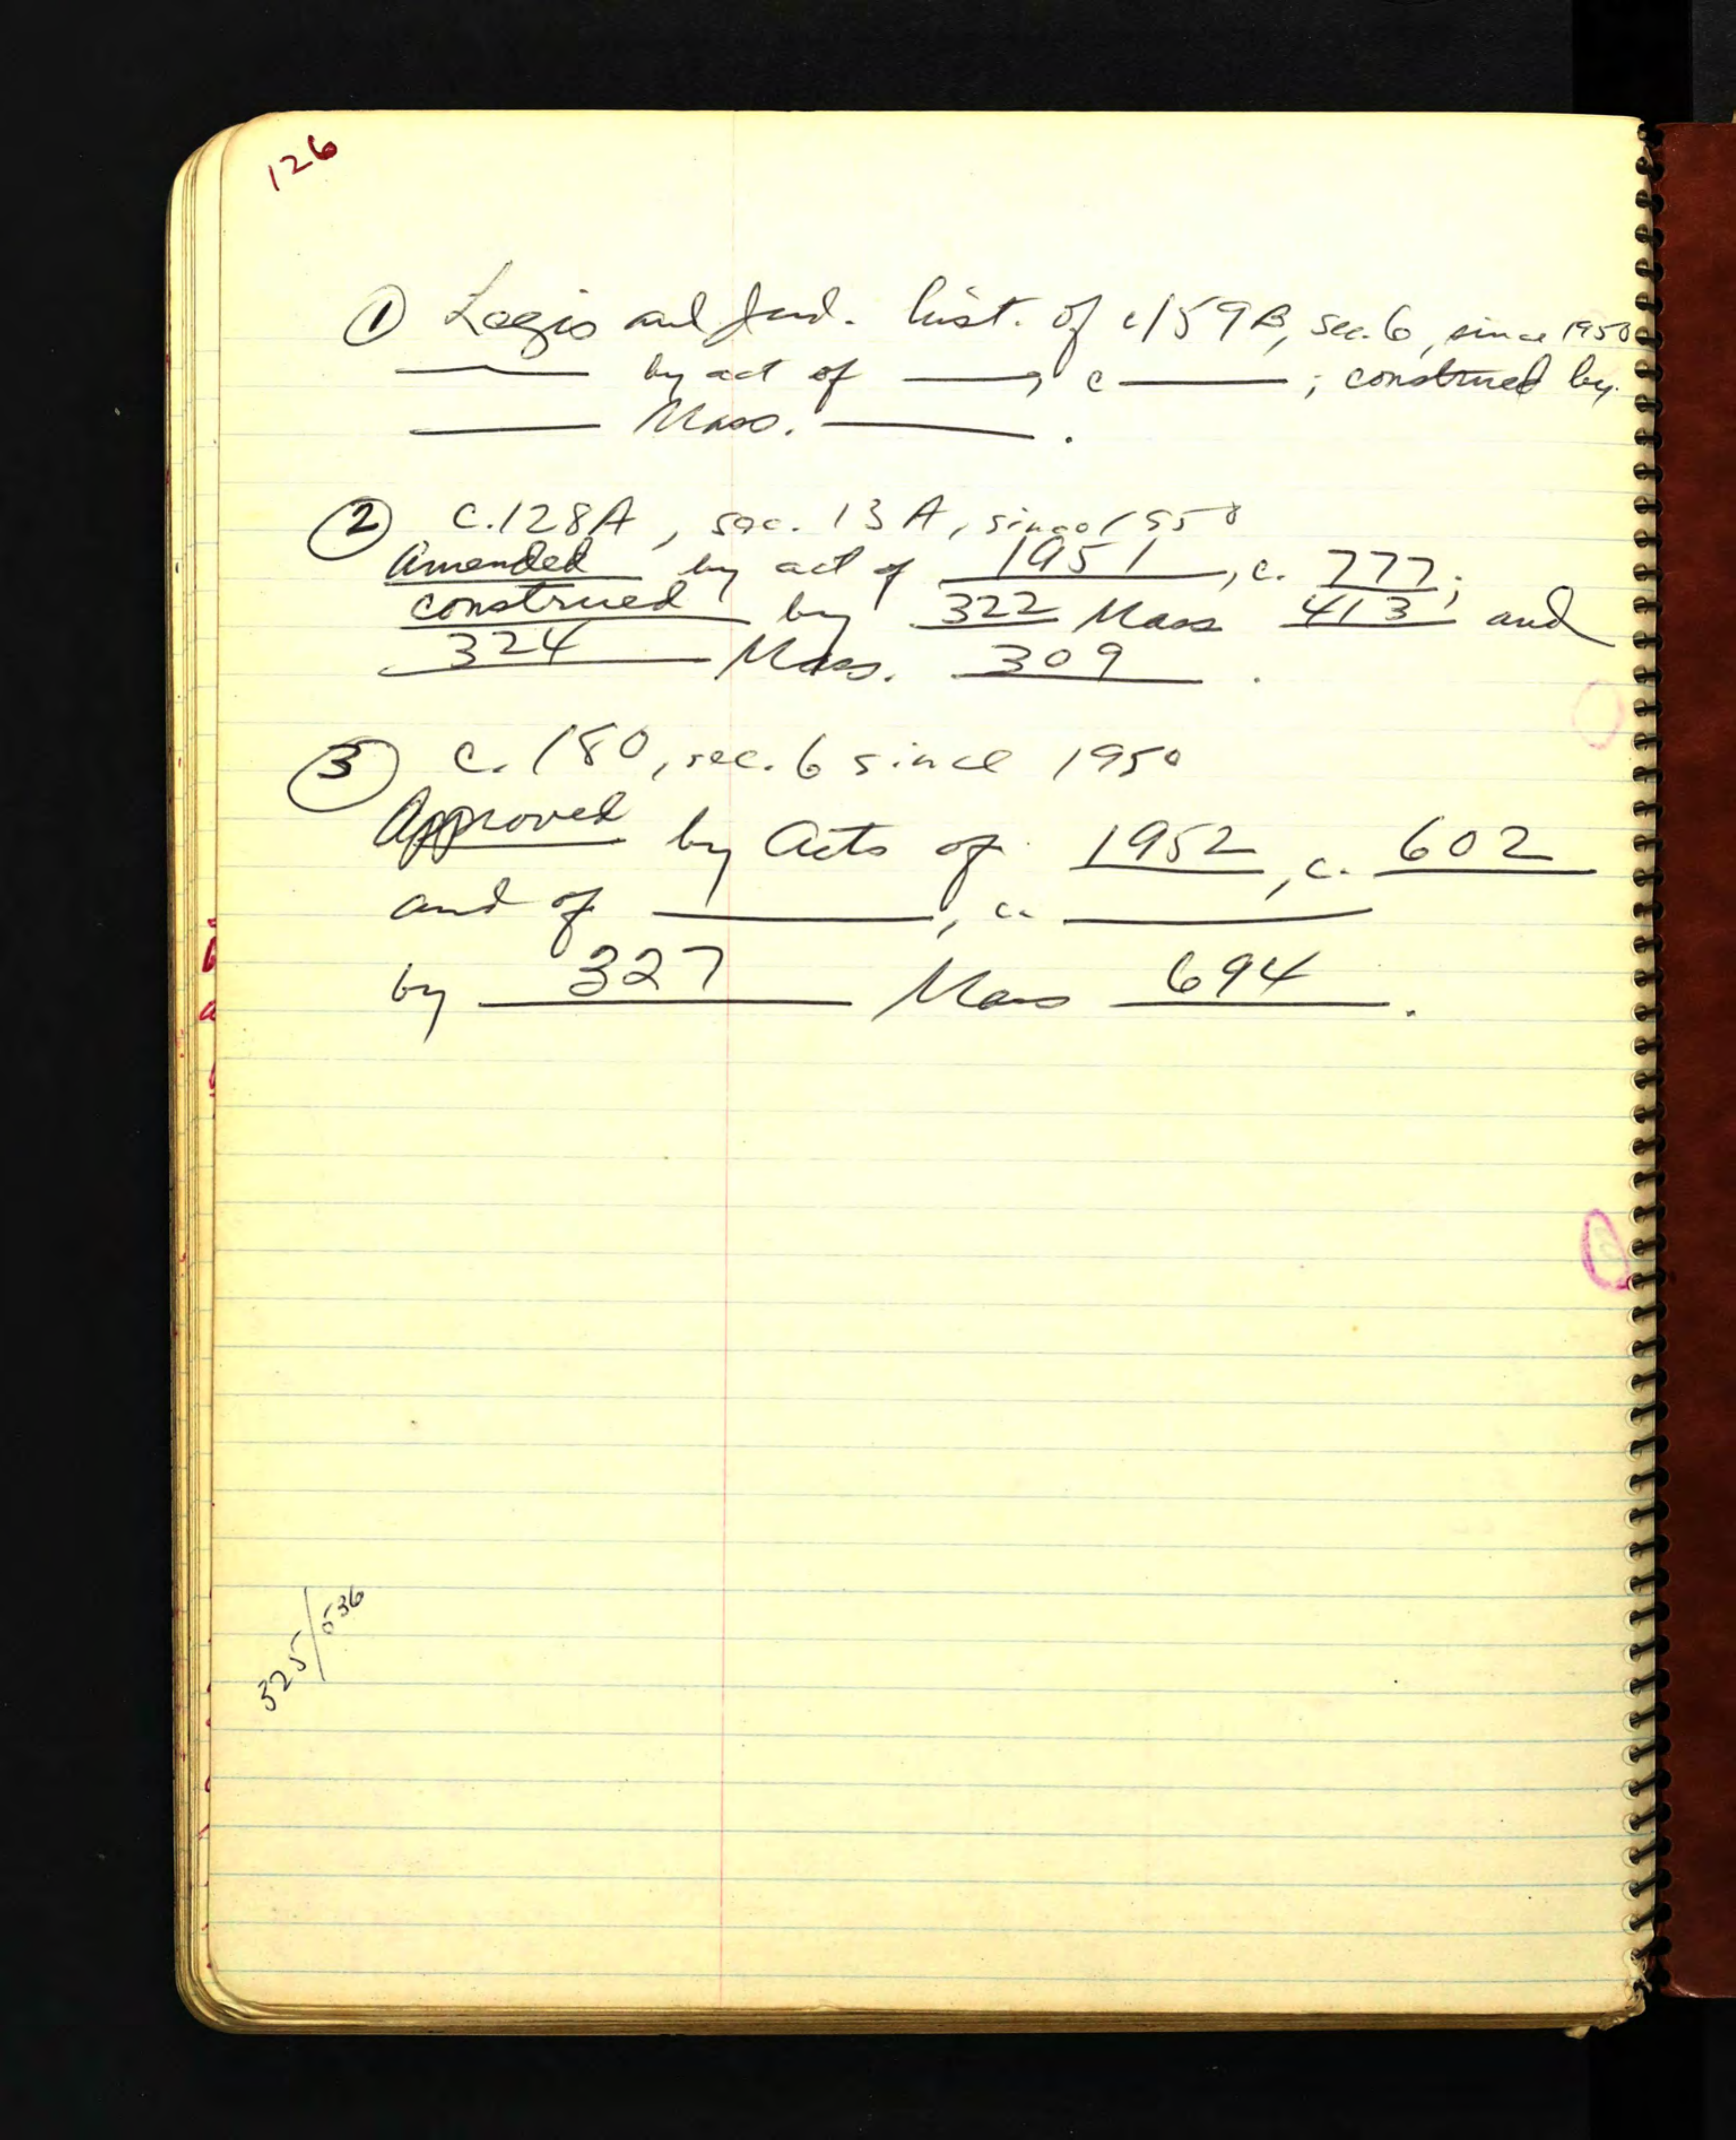 126
① Legis and Jud. hist. of c159B, sec. 6, since 1950
______ by act of ______, c ______; construed by
______ Mass. ______.
② c.128A, sec. 13A, since 1950
Amended by act of 1951, c. 777;
construed by 322 Mass 413 and
324 Mass. 309.
③ c. 180, sec. 6 since 1950
Approved by Acts of 1952, c. 602
and of ______, c. ______
by 327 Mass 694.
325/536